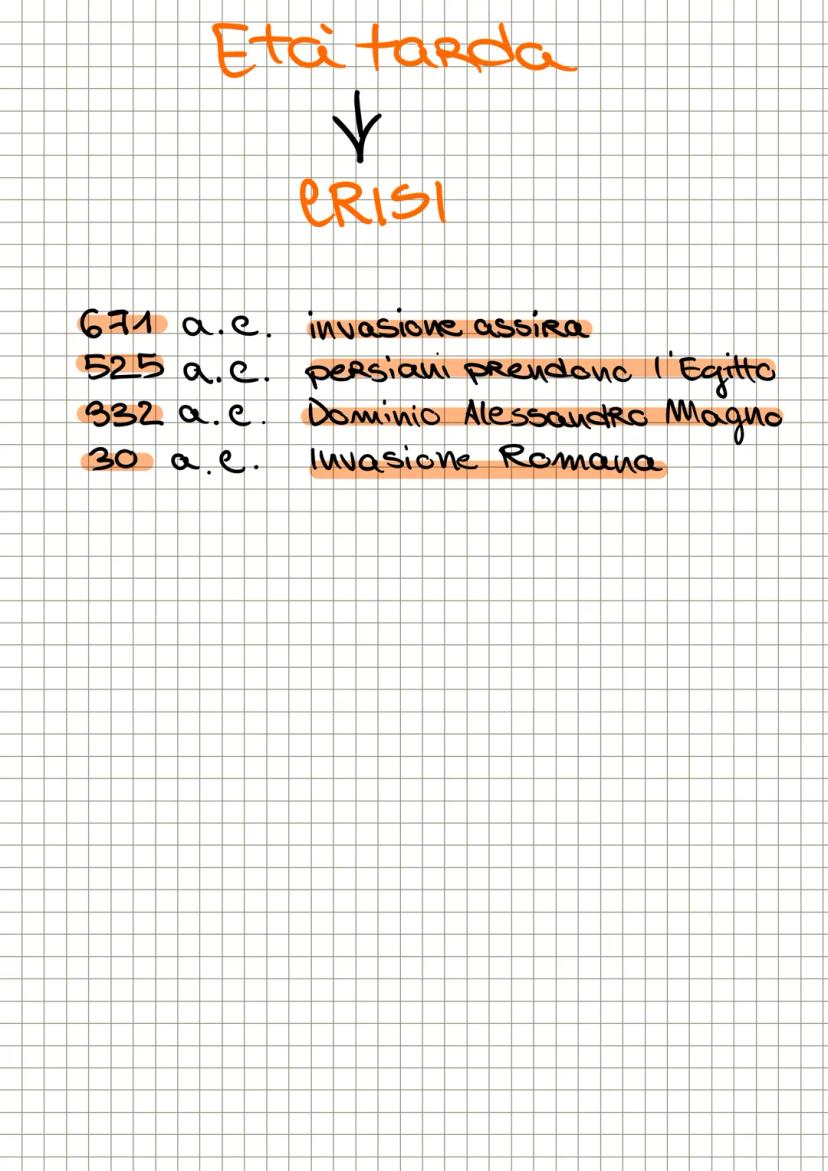 Età tarda
↓
CRISI
671 a.C. invasione assira
525 a.C. persiani prendono l'Egitto
332 a.C. Dominio Alessandro Magno
30 a.C. Invasione Romana